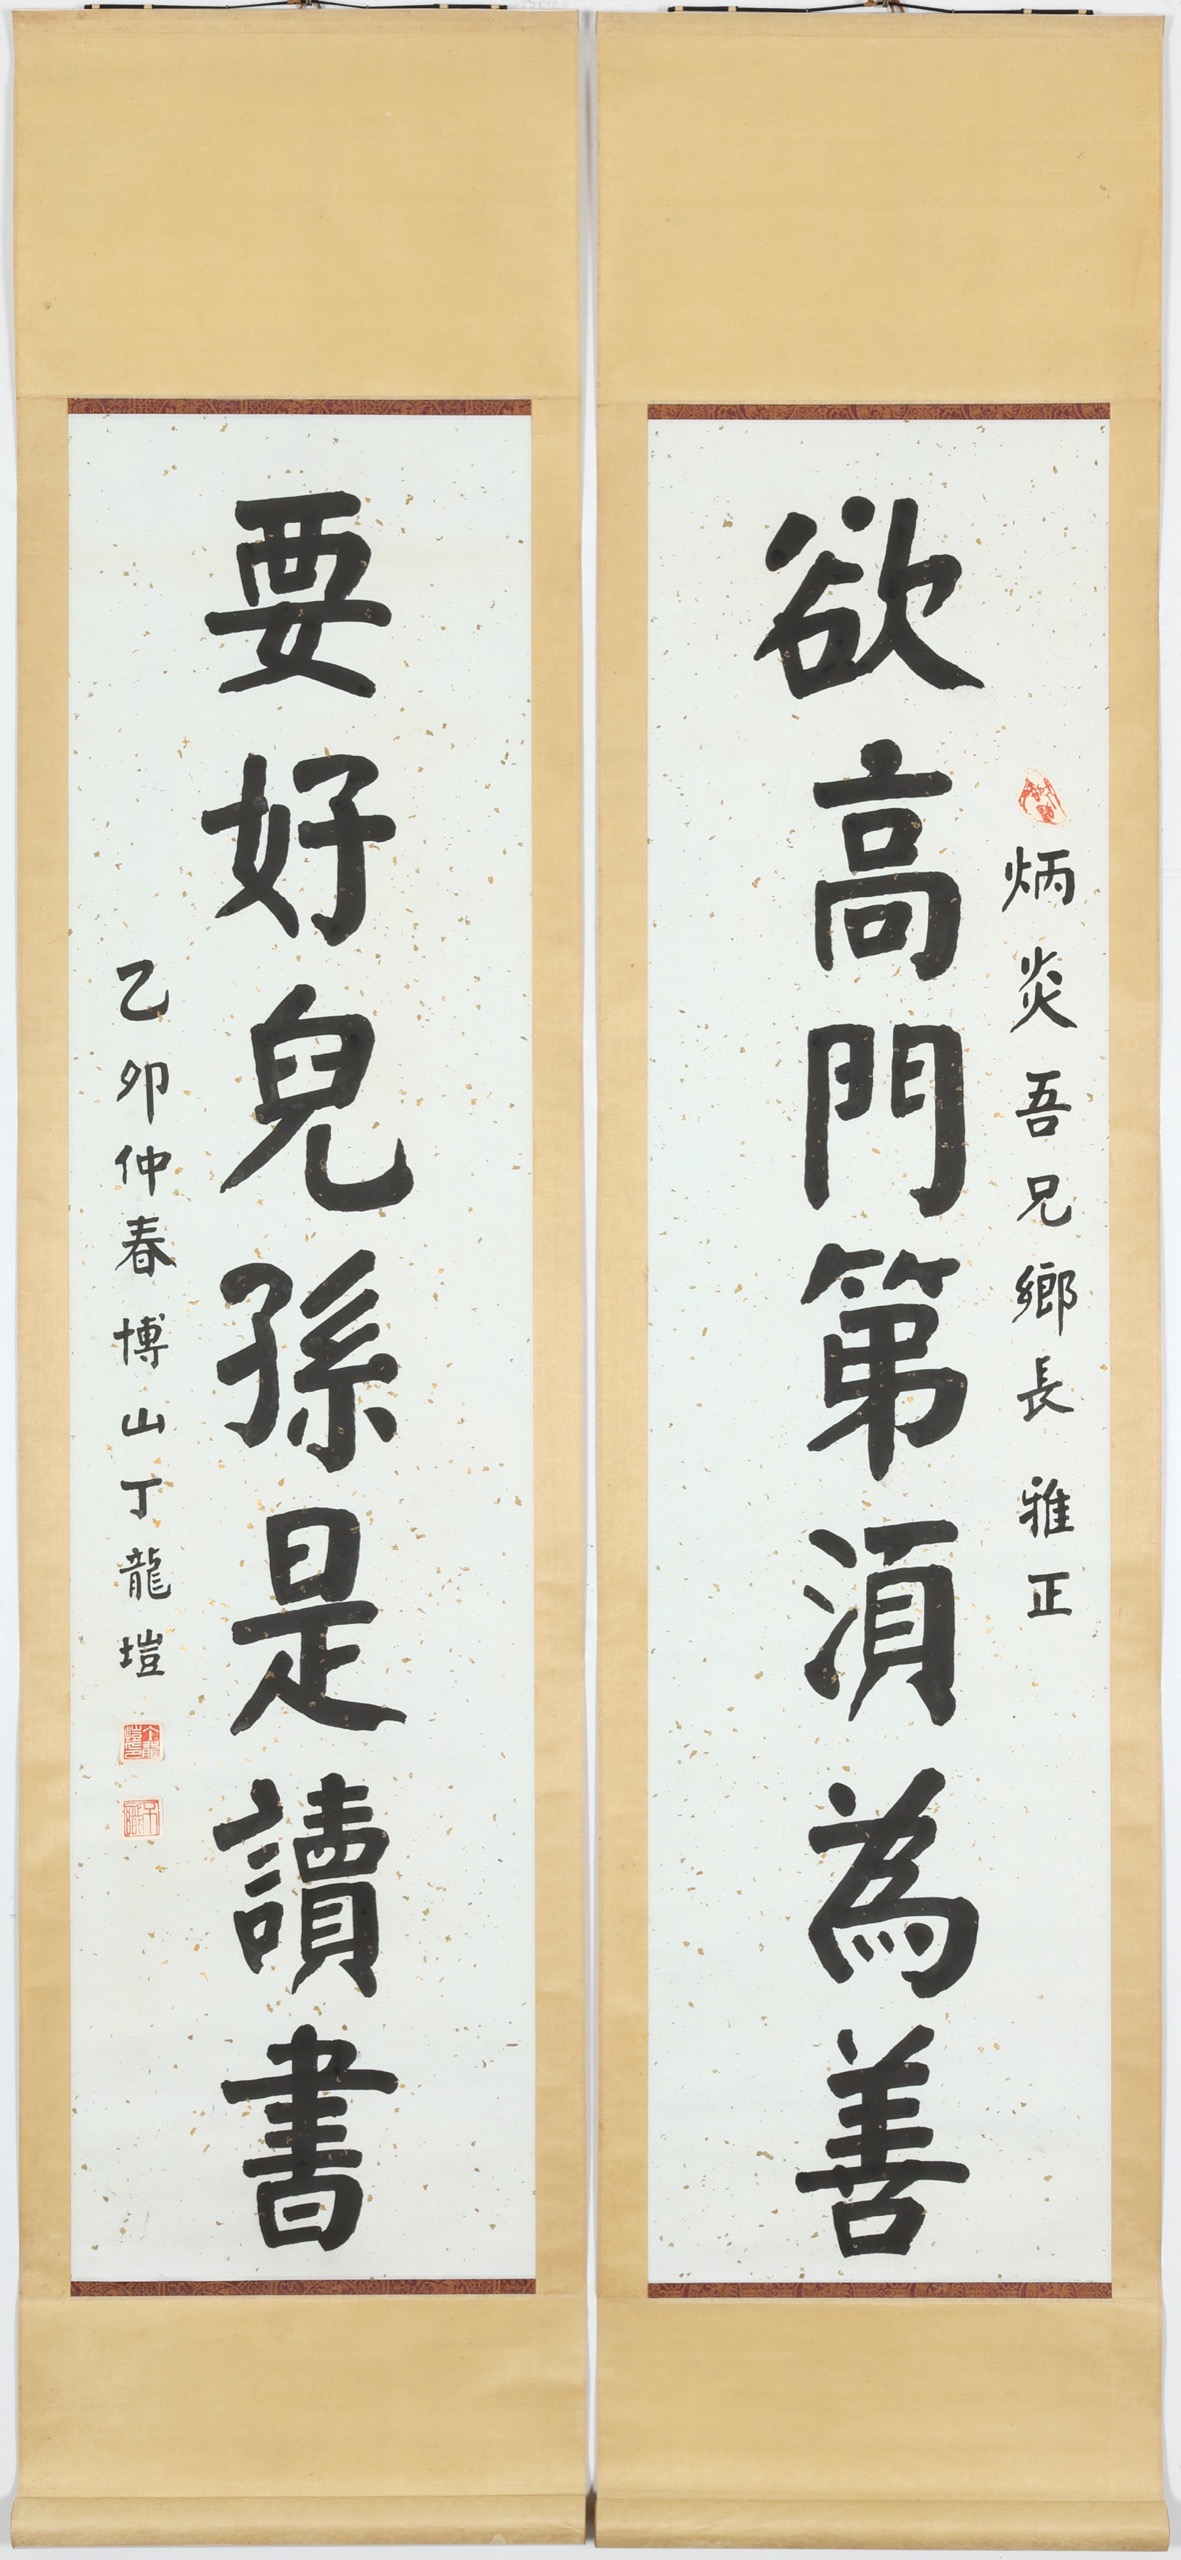 欲高門第須為善
炳炎吾兄鄉長 雅正
要好兒孫是讀書
乙卯仲春博山丁龍塏